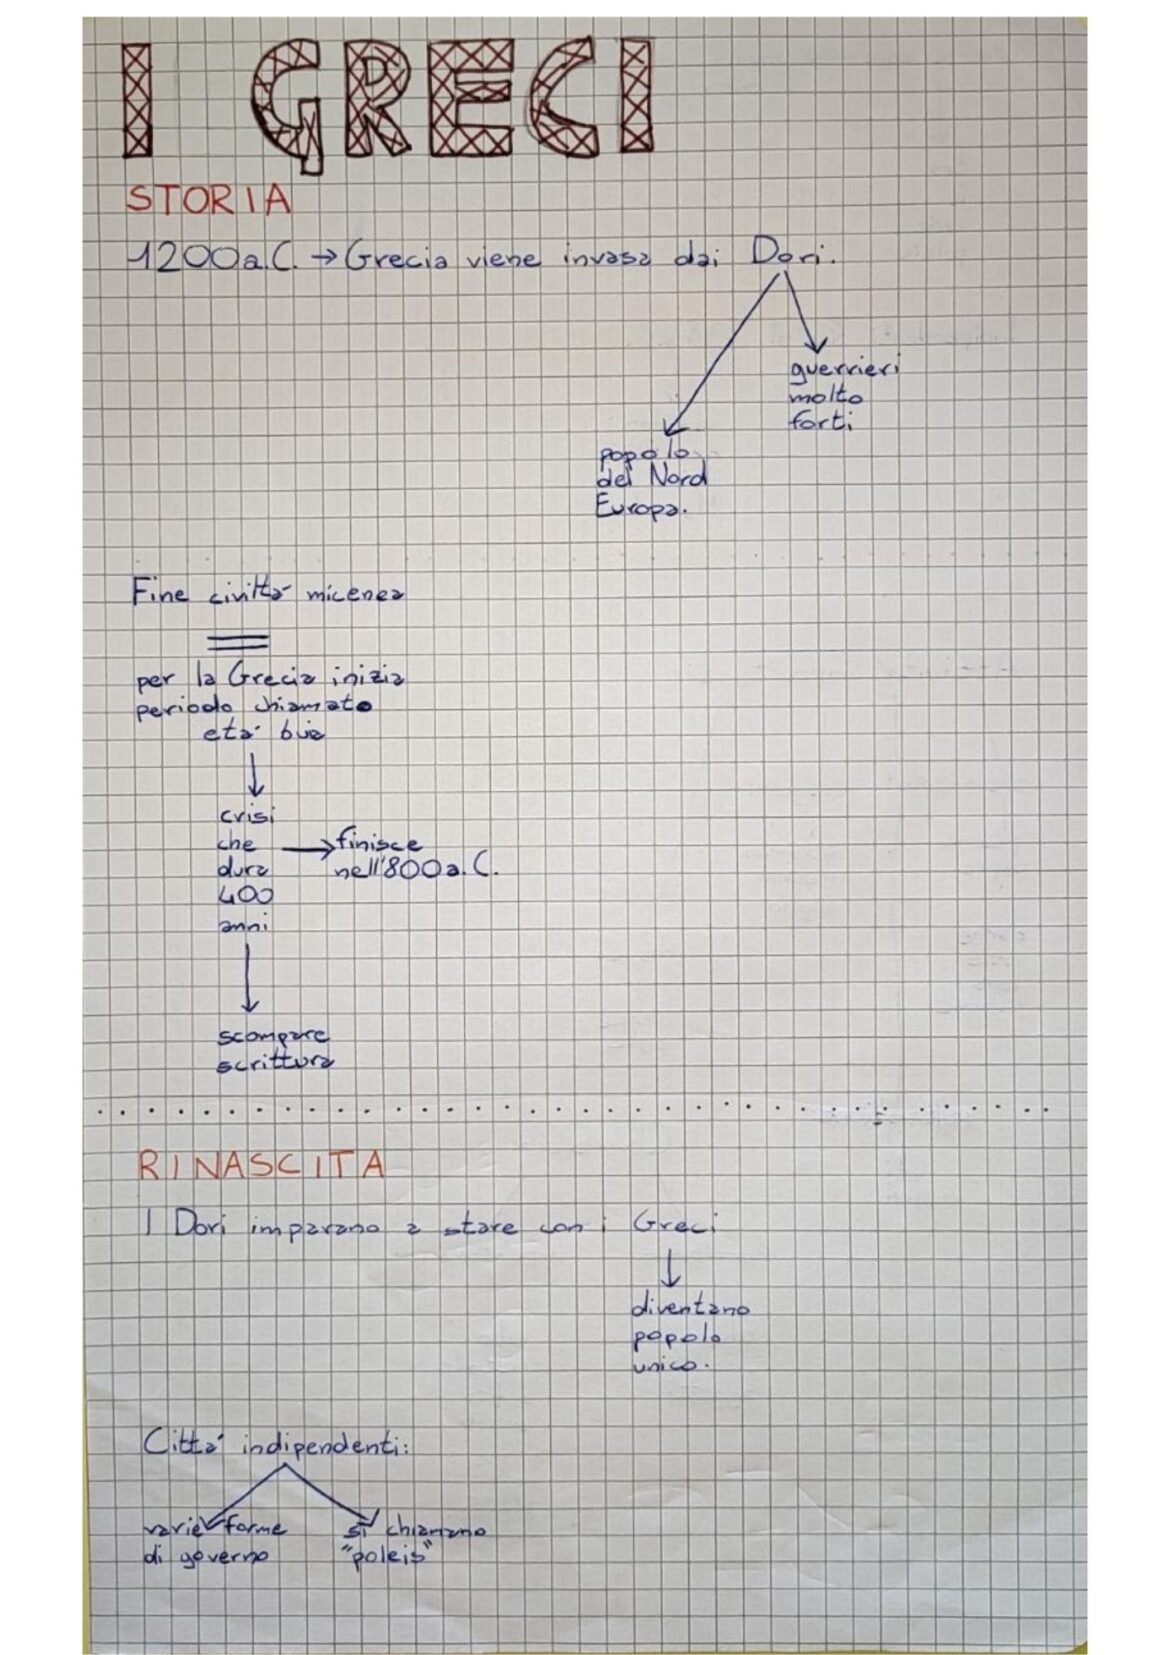 I GRECI
STORIA
1200 a.C. → Grecia viene invasa dai Dori.
guerrieri
molto
forti
popolo
del Nord
Europa.
Fine civiltà micenea
=
per la Grecia inizia
periodo chiamato
età buia
↓
crisi
che → finisce
dura nell'800 a.C.
400
anni
↓
scompare
scrittura
RINASCITA
I Dori imparano a stare con i Greci
↓
diventano
popolo
unico.
Città indipendenti:
varie forme si chiamano
di governo "poleis"